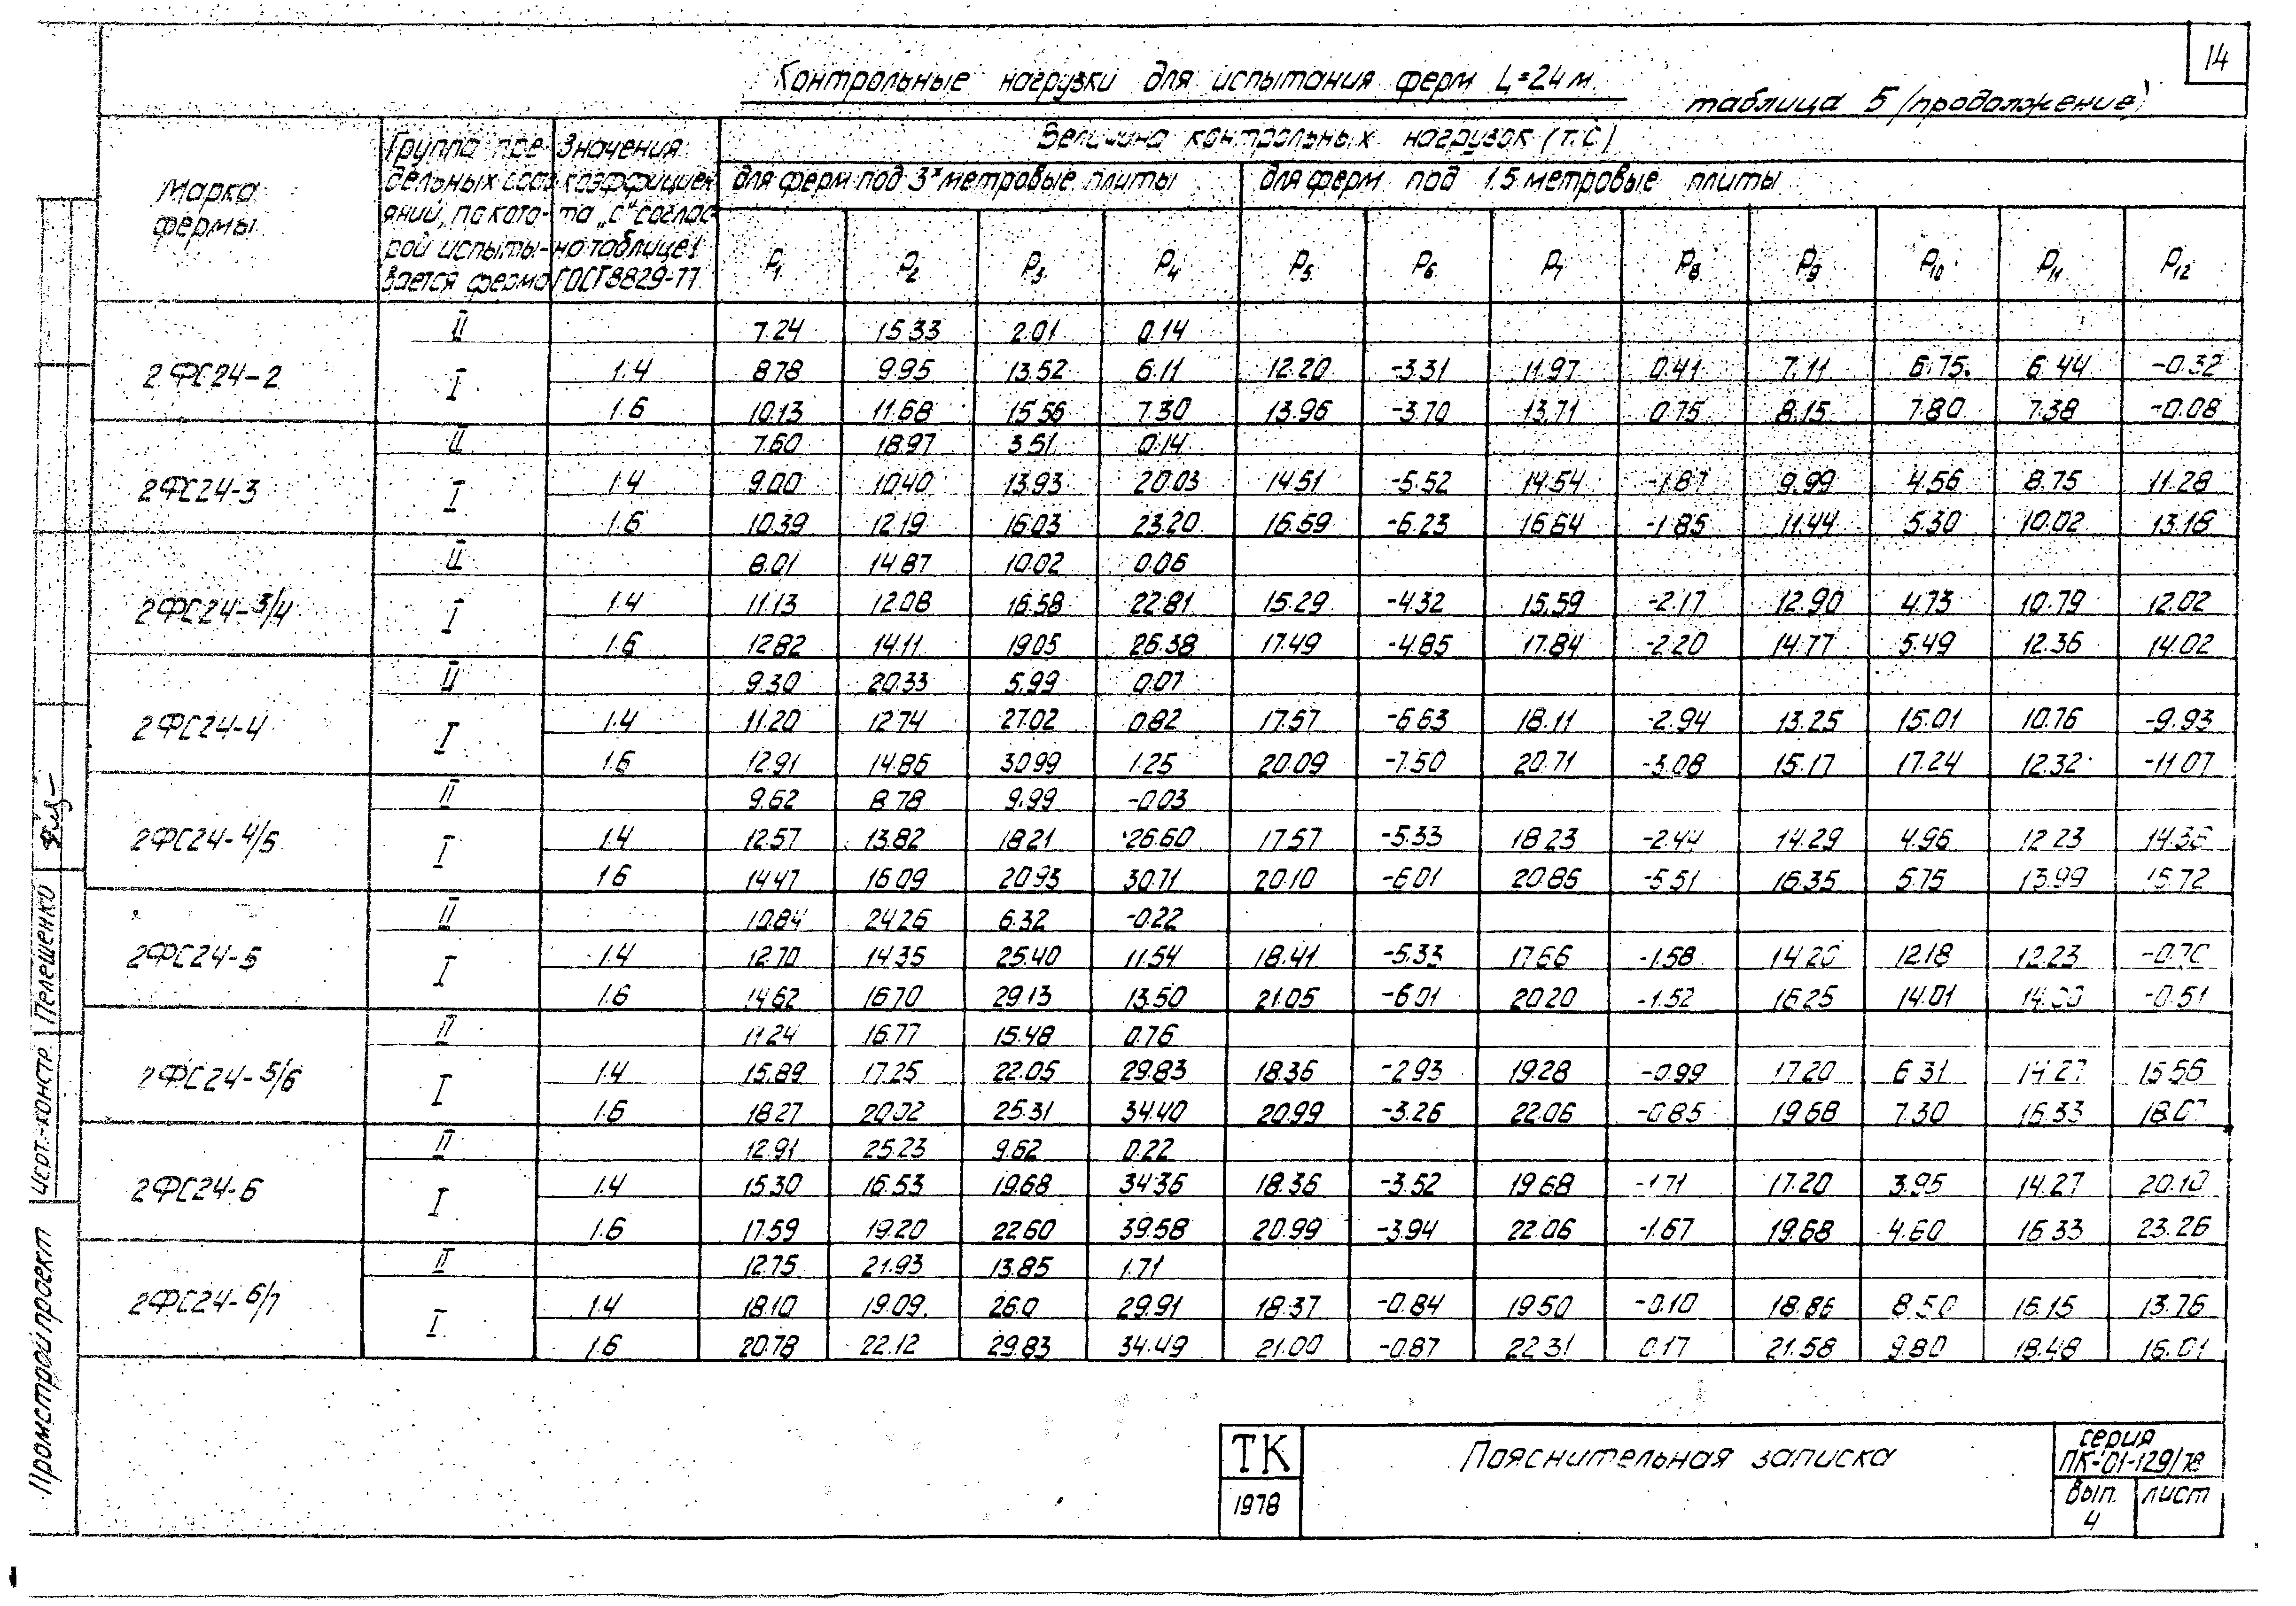 14
Контрольные нагрузки для испытания ферм L=24м
таблица 5 /продолжение/
Марка фермы
Группа предельных состояний, по которой испытывается ферма
Значения коэффициента „С" согласно таблице 1 ГОСТ 8829-77
Величина контрольных нагрузок (т.с)
для ферм под 3х метровые плиты
для ферм под 1.5 метровые плиты
P1 P2 P3 P4 P5 P6 P7 P8 P9 P10 P11 P12
2ФС24-2
II 7.24 15.33 2.01 0.14
I 1.4 8.78 9.95 13.52 6.11 12.20 -3.31 11.97 0.41 7.11 6.75 6.44 -0.32
1.6 10.13 11.68 15.56 7.30 13.96 -3.70 13.71 0.75 8.15 7.80 7.38 -0.08
2ФС24-3
II 7.60 18.97 3.51 0.14
I 1.4 9.00 10.40 13.93 20.03 14.51 -5.52 14.54 -1.87 9.99 4.56 8.75 11.28
1.6 10.39 12.19 16.03 23.20 16.59 -6.23 16.64 -1.85 11.44 5.30 10.02 13.18
2ФС24-3/4
II 8.01 14.87 10.02 0.06
I 1.4 11.13 12.08 16.58 22.81 15.29 -4.32 15.59 -2.17 12.90 4.73 10.79 12.02
1.6 12.82 14.11 19.05 26.38 17.49 -4.85 17.84 -2.20 14.77 5.49 12.36 14.02
2ФС24-4
II 9.30 20.33 5.99 0.07
I 1.4 11.20 12.74 27.02 0.82 17.57 -6.63 18.11 -2.94 13.25 15.01 10.76 -9.93
1.6 12.91 14.86 30.99 1.25 20.09 -7.50 20.71 -3.08 15.17 17.24 12.32 -11.07
2ФС24-4/5
II 9.62 8.78 9.99 -0.03
I 1.4 12.57 13.82 18.21 26.60 17.57 -5.33 18.23 -2.44 14.29 4.96 12.23
1.6 14.47 16.09 20.93 30.71 20.10 -6.01 20.86 -5.51 16.35 5.75 13.99
2ФС24-5
II 10.84 24.26 6.32 -0.22
I 1.4 12.70 14.35 25.40 11.54 18.41 -5.33 17.66 -1.58 14.20 12.18 12.23
1.6 14.62 16.70 29.13 13.50 21.05 -6.01 20.20 -1.52 16.25 14.01 -0.51
2ФС24-5/6
II 11.24 16.77 15.48 0.76
I 1.4 15.89 17.25 22.05 29.83 18.36 -2.93 19.28 -0.99 17.20 6.31 14.27 15.56
1.6 18.27 20.02 25.31 34.40 20.99 -3.26 22.06 -0.85 19.68 7.30 16.33 18.07
2ФС24-6
II 12.91 25.23 9.62 0.22
I 1.4 15.30 16.53 19.68 34.36 18.36 -3.52 19.68 -1.71 17.20 3.95 14.27 20.10
1.6 17.59 19.20 22.60 39.58 20.99 -3.94 22.06 -1.67 19.68 4.60 16.33 23.26
2ФС24-6/7
II 12.75 21.93 13.85 1.71
I 1.4 18.10 19.09 26.0 29.91 18.37 -0.84 19.50 -0.10 18.86 8.50 16.15 13.76
1.6 20.78 22.12 29.83 34.49 21.00 -0.87 22.31 0.17 21.58 9.80 18.48 16.01
ТК
1978
Пояснительная записка
серия
ПК-01-129/78
вып.
4
лист
Промстройпроект
констр.
Пелещенко